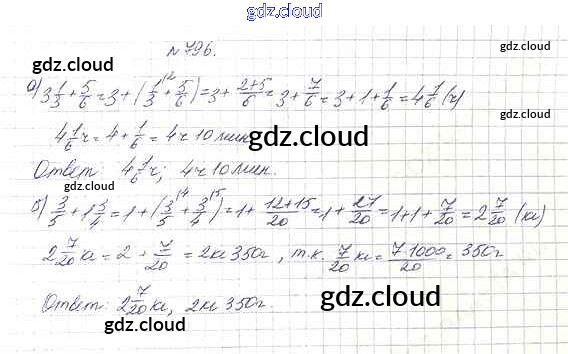 gdz.cloud
№ 796.
gdz.cloud gdz.cloud
а) 3 1/3 + 5/6 = 3 + (1/3^(2 + 5/6) = 3 + (2+5)/6 = 3 + 7/6 = 3 + 1 + 1/6 = 4 1/6 (ч)
4 1/6 ч = 4 + 1/6 = 4ч 10 мин.
gdz.cloud
Ответ: 4 1/6 ч; 4ч 10 мин.
gdz.cloud gdz.cloud
б) 3/5 + 1 3/4 = 1 + (3/5^(4 + 3/4^(5) = 1 + (12+15)/20 = 1 + 27/20 = 1+1+ 7/20 = 2 7/20 (кг)
gdz.cloud
2 7/20 кг = 2 + 7/20 = 2кг 350г, т.к. 7/20 кг = (7·1000)/20 = 350г
gdz.cloud
Ответ: 2 7/20 кг, 2кг 350г.
gdz.cloud
gdz.cloud